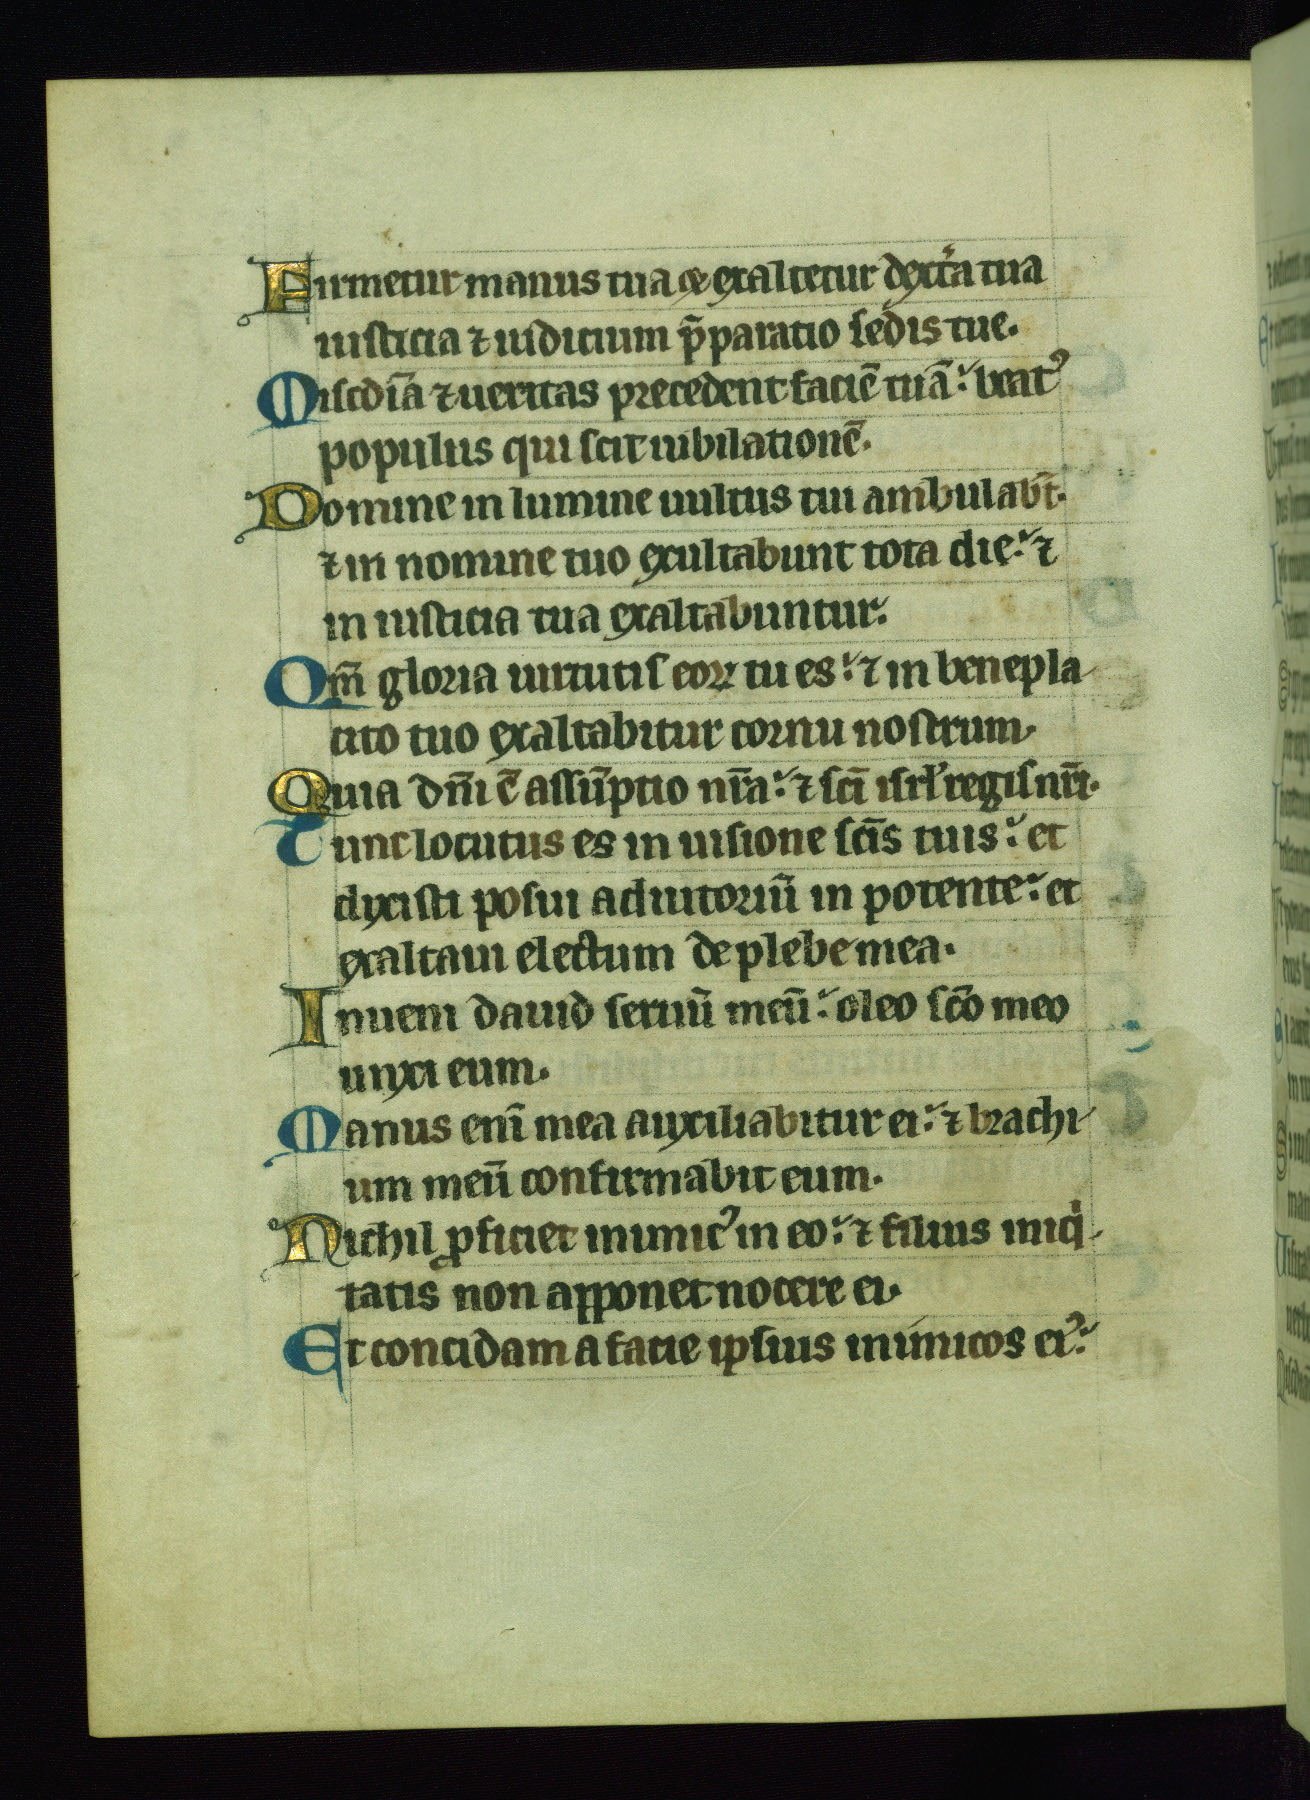 Firmetur manus tua ⁊ exaltetur dext̄a tua
iusticia ⁊ iudicium p̄paratio sedis tue.
Misc̄dīa ⁊ ueritas precedent faciē tuā: beatꝰ
populus qui scit iubilationē.
Domine in lumine uultus tui ambulab̄t.
⁊ in nomine tuo exultabunt tota die: ⁊
in iusticia tua exaltabuntur.
Qm̄ gloria uirtutis eoꝝ tu es: ⁊ in benepla-
cito tuo exaltabitur cornu nostrum.
Quia dn̄i ē assūptio nr̄a: ⁊ sc̄i isrl̄ regis nr̄i.
Tunc locutus es in uisione sc̄is tuis: et
dixisti posui adiutoriū in potente: et
exaltaui electum de plebe mea.
Inueni dauid seruū meū: oleo sc̄o meo
unxi eum.
Manus eni̅ mea auxiliabitur ei: ⁊ brachi-
um meū confirmabit eum.
Nichil ꝓficiet inimicꝰ in eo: ⁊ filius iniqͥ-
tatis non apponet nocere ei.
Et concidam a facie ipsius inimicos eiꝰ: